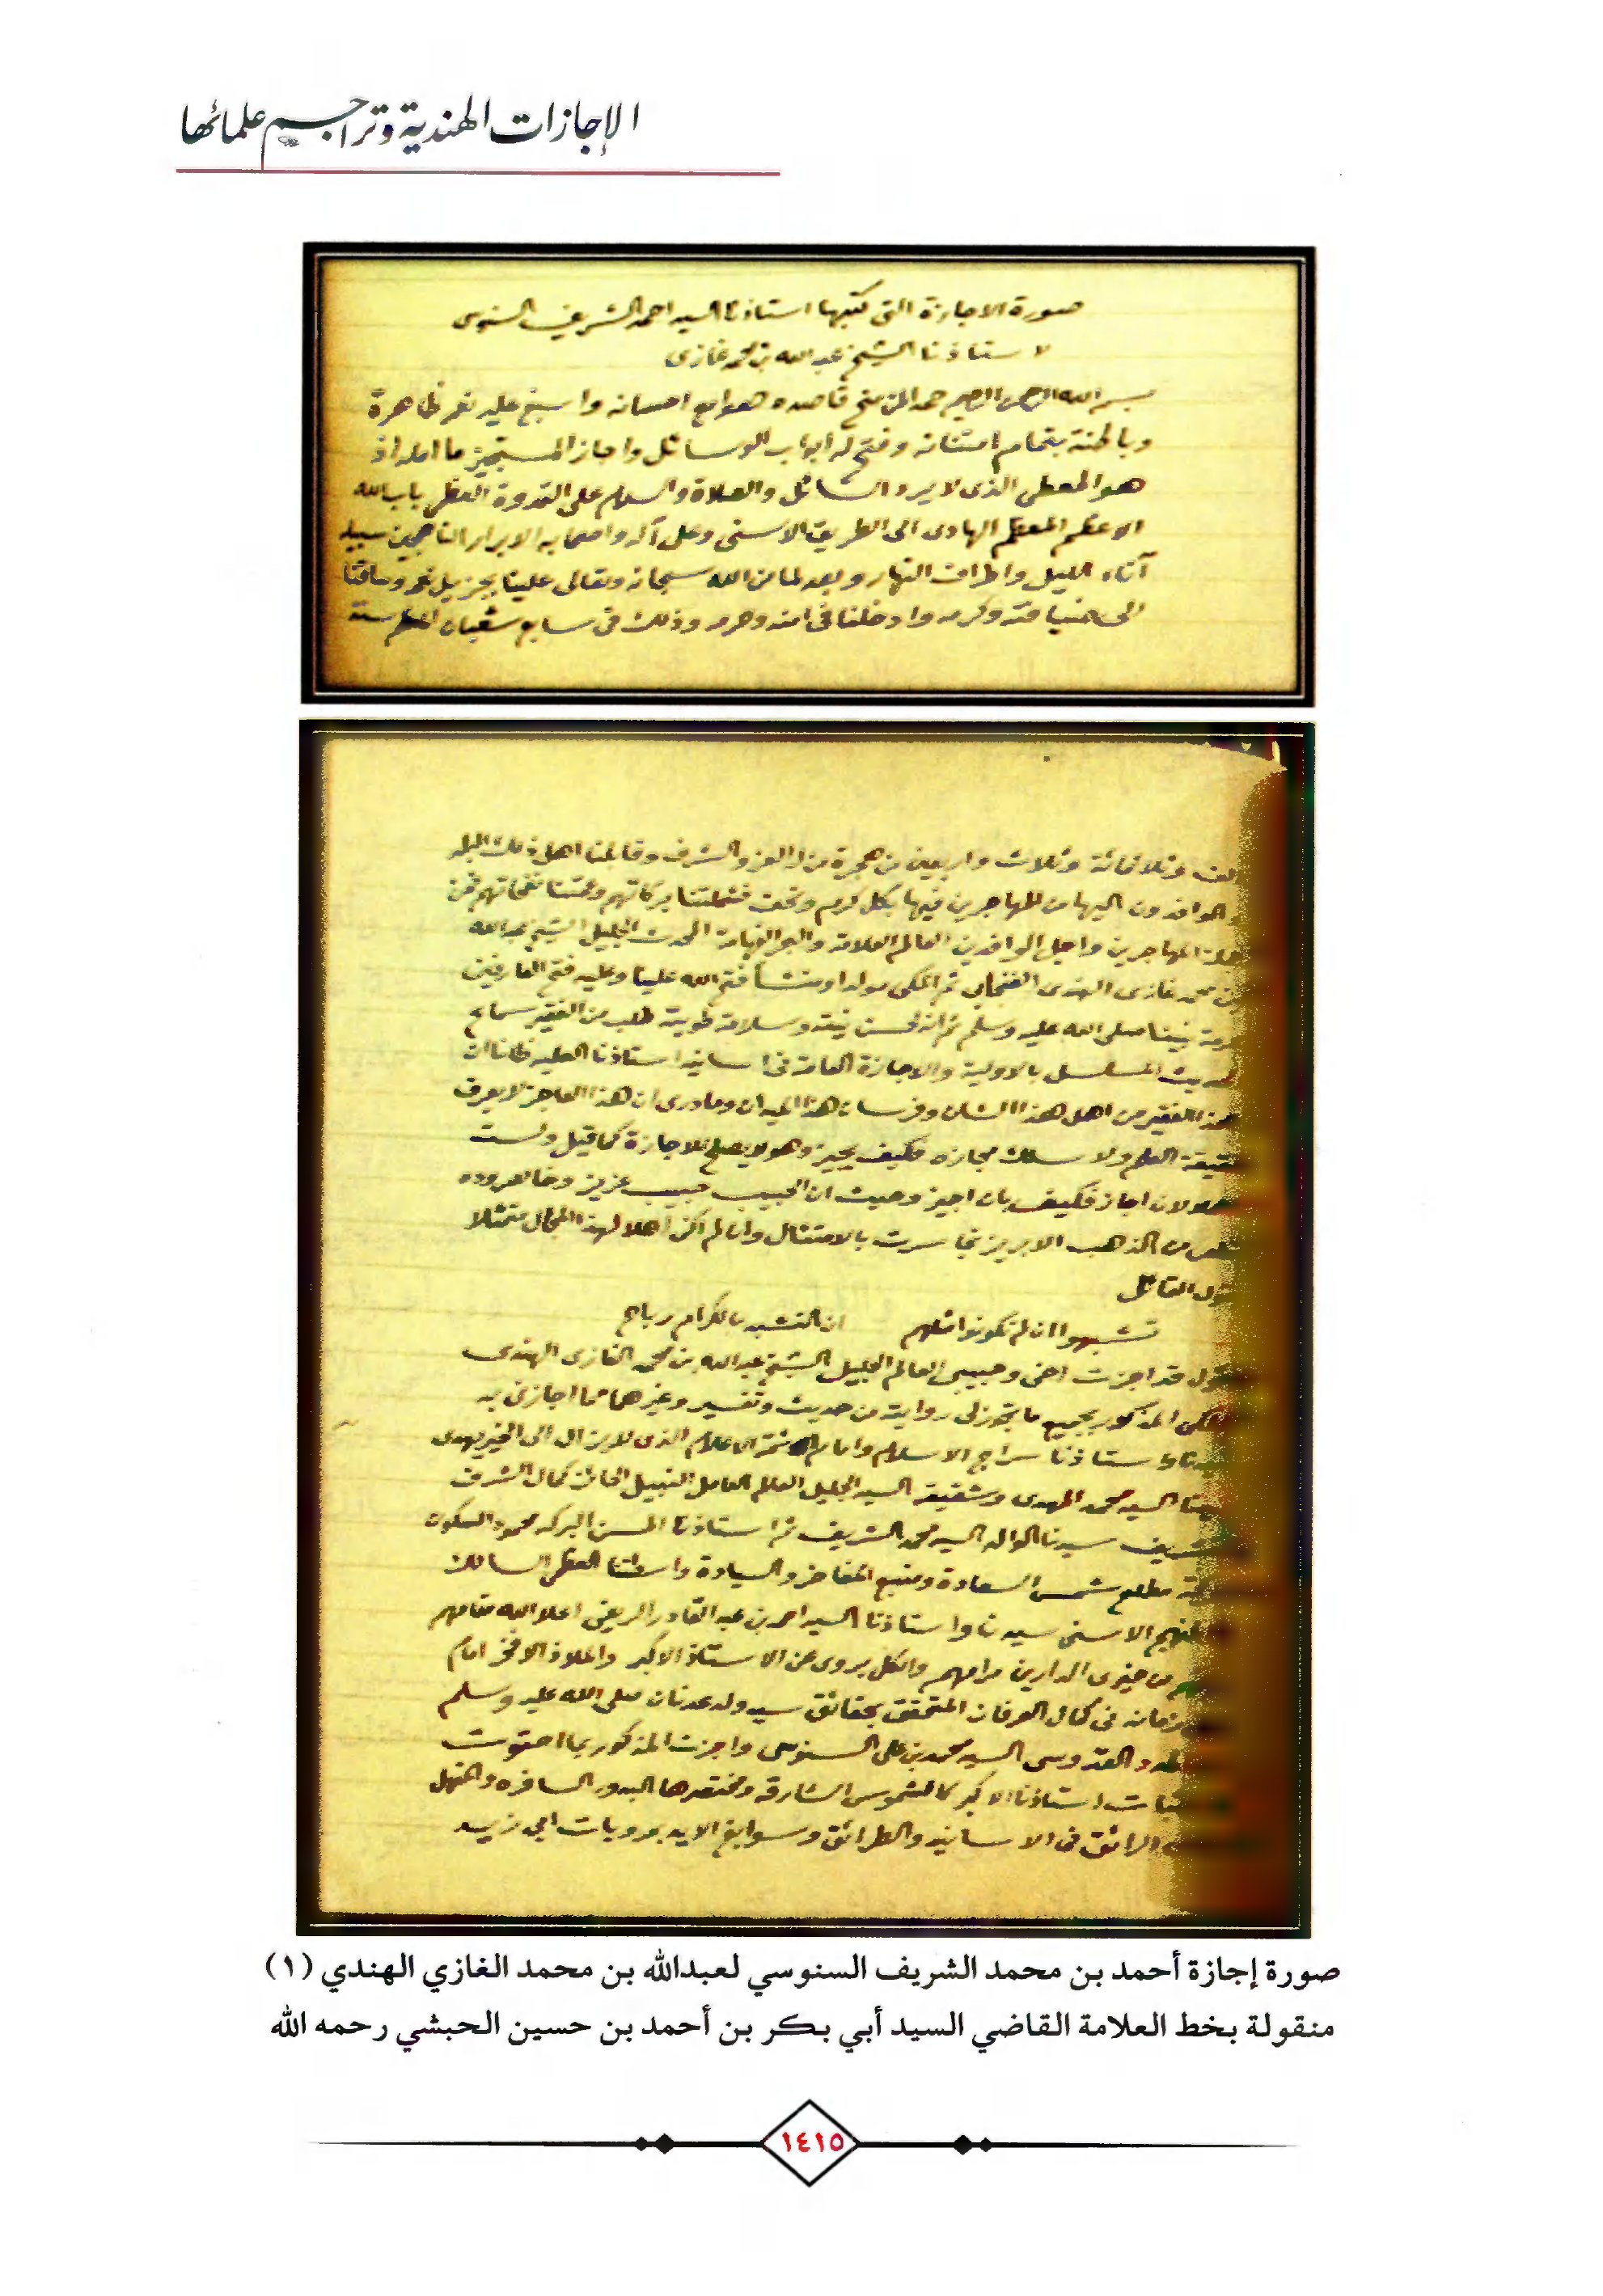 الإجازات الهندية وتراجيم علمائها
صورة الاجازة التى كتبها استاذنا السيد احمد الشريف السنوسى
لاستاذنا الشيخ عبد الله بن محمد غازى
بسم الله الرحمن الرحيم حمدا لمن منح قاصده هوامع احسانه واسبغ عليه نعم ظاهرة
وباطنة بتمام امتنانه وفتح له ابواب الوسائل واجاز المستجيز ما امله اذ
هو المعطى الذى لا يرد السائل والصلاة والسلام على القدوة العظمى باب الله
الاعظم المعظم الهادى الى الطريق الاسنى وعلى آله واصحابه الابرار الناهجين سبيله
آناء الليل واطراف النهار وبعد لما من الله سبحانه وتعالى علينا بجزيل نعمه وساقنا
الى ضيافته وكرمه وادخلنا فى امنه وحرمه وذلك فى سابع شعبان المعظم سنة
الف وثلاثمائة وثلاث واربعين من هجرة من له العز والشرف وقابلنا اهل ذلك البلد
والوافدون اليها من المهاجرين فيها بكل كرم وتحف فشملتنا بركاتهم وعمتنا نفحاتهم فمن
المهاجرين واجل الوافدين العالم العلامة والبحر الفهامة المحدث الجليل الشيخ عبد الله
بن محمد غازى الهندى ثم المكى مولدا ومنشأ فتح الله علينا وعليه فتح العارفين
نبينا صلى الله عليه وسلم ثم انه لحسن نيته وسلامة طويته طلب من الفقير سماع
حديث المسلسل بالاولية والاجازة العامة فى اسانيد استاذنا العلية ظانا ان
هذا الفقير من اهل هذا الشان وفرسان هذا الميدان وما درى ان هذا العاجز لا يعرف
حقيقة العلم ولا سلك مجازه فكيف يجيز وهو لا يصلح للاجازة كما قيل ولست
لان اجاز فكيف بان اجيز وحيث ان الحبيب حبيب عزيز
من الذهب الابريز تجاسرت بالامتثال وان لم اكن اهلا لهذا المجال متمثلا
قول القائل
تشبهوا ان لم تكونوا مثلهم ان التشبه بالكرام رباح
اقول قد اجزت اخى وحبيبى العالم الجليل الشيخ عبد الله بن محمد الغازى الهندى
المكى المذكور بجميع ما تجوز لى روايته من حديث وتفسير وغيرهما مما اجازنى به
استاذنا سراج الاسلام وامام الائمة الاعلام الذى لا يزال الى الخير يهدى
السيد محمد المهدى وشقيقه السيد الجليل العالم العامل النبيل الحائز كمال الشرف
سيدنا الوالد السيد محمد الشريف ثم استاذنا المحسن البركة محمود السكون
مطلع شمس السعادة ومنبع المفاخر والسيادة واسطتنا العظمى السالك
المنهج الاسنى سيدنا واستاذنا السيد احمد بن عبد القادر الريفى اعلا الله مقامهم
من خيرى الدارين مرامهم والكل يروى عن الاستاذ الاكبر والملاذ الافخر امام
زمانه فى كمال العرفان المتحقق بحقائق سيد ولد عدنان صلى الله عليه وسلم
السيد محمد بن على السنوسى واجزت المذكور بما احتوت
استاذنا الاكبر كالشموس الشارقة ومختصرها البدور السافرة والمنهل
الرائق فى الاسانيد والطرائق وسوابغ الايد بمرويات ابى زيد
صورة إجازة أحمد بن محمد الشريف السنوسي لعبدالله بن محمد الغازي الهندي (١)
منقولة بخط العلامة القاضي السيد أبي بكر بن أحمد بن حسين الحبشي رحمه الله
١٤١٥